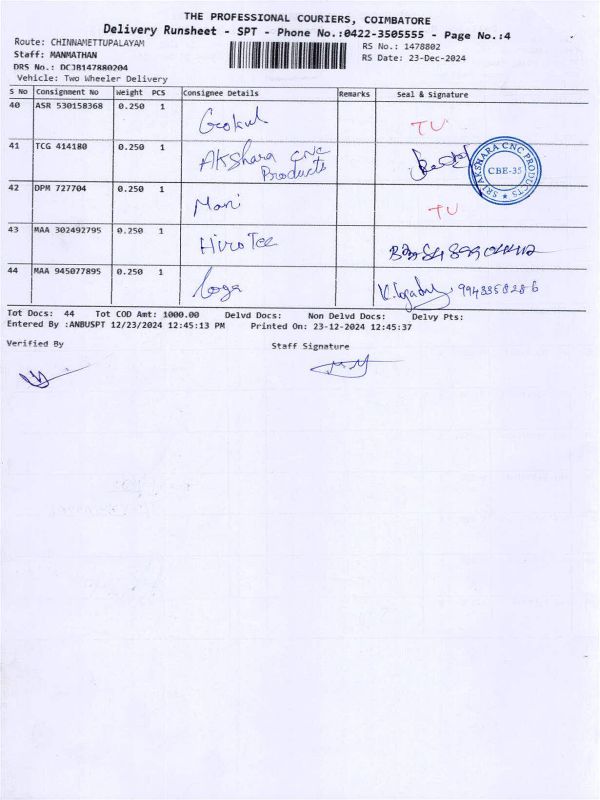 THE PROFESSIONAL COURIERS, COIMBATORE
Delivery Runsheet - SPT - Phone No.:0422-3505555 - Page No.:4
Route: CHINNAMETTUPALAYAM
RS No.: 1478802
Staff: MANMATHAN
RS Date: 23-Dec-2024
DRS No.: DCJB147880204
Vehicle: Two Wheeler Delivery
S No Consignment No Weight PCS Consignee Details Remarks Seal & Signature
40 ASR 530158368 0.250 1 Gokul TU
41 TCG 414180 0.250 1 AKShara CNC Products
SRI AKSHARA CNC PRODUCTS
CBE-35
42 DPM 727704 0.250 1 Mani TU
43 MAA 302492795 0.250 1 Hiro Tec
44 MAA 945077895 0.250 1 Loga 9943358286
Tot Docs: 44 Tot COD Amt: 1000.00 Delvd Docs: Non Delvd Docs: Delvy Pts:
Entered By :ANBUSPT 12/23/2024 12:45:13 PM Printed On: 23-12-2024 12:45:37
Verified By Staff Signature